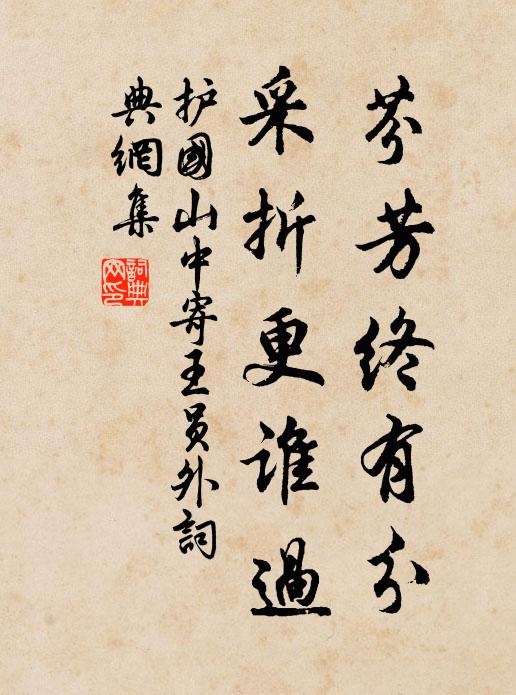 芬芳终有分
采折更谁過
护國山中寄王员外詞
典網集
詞典网印